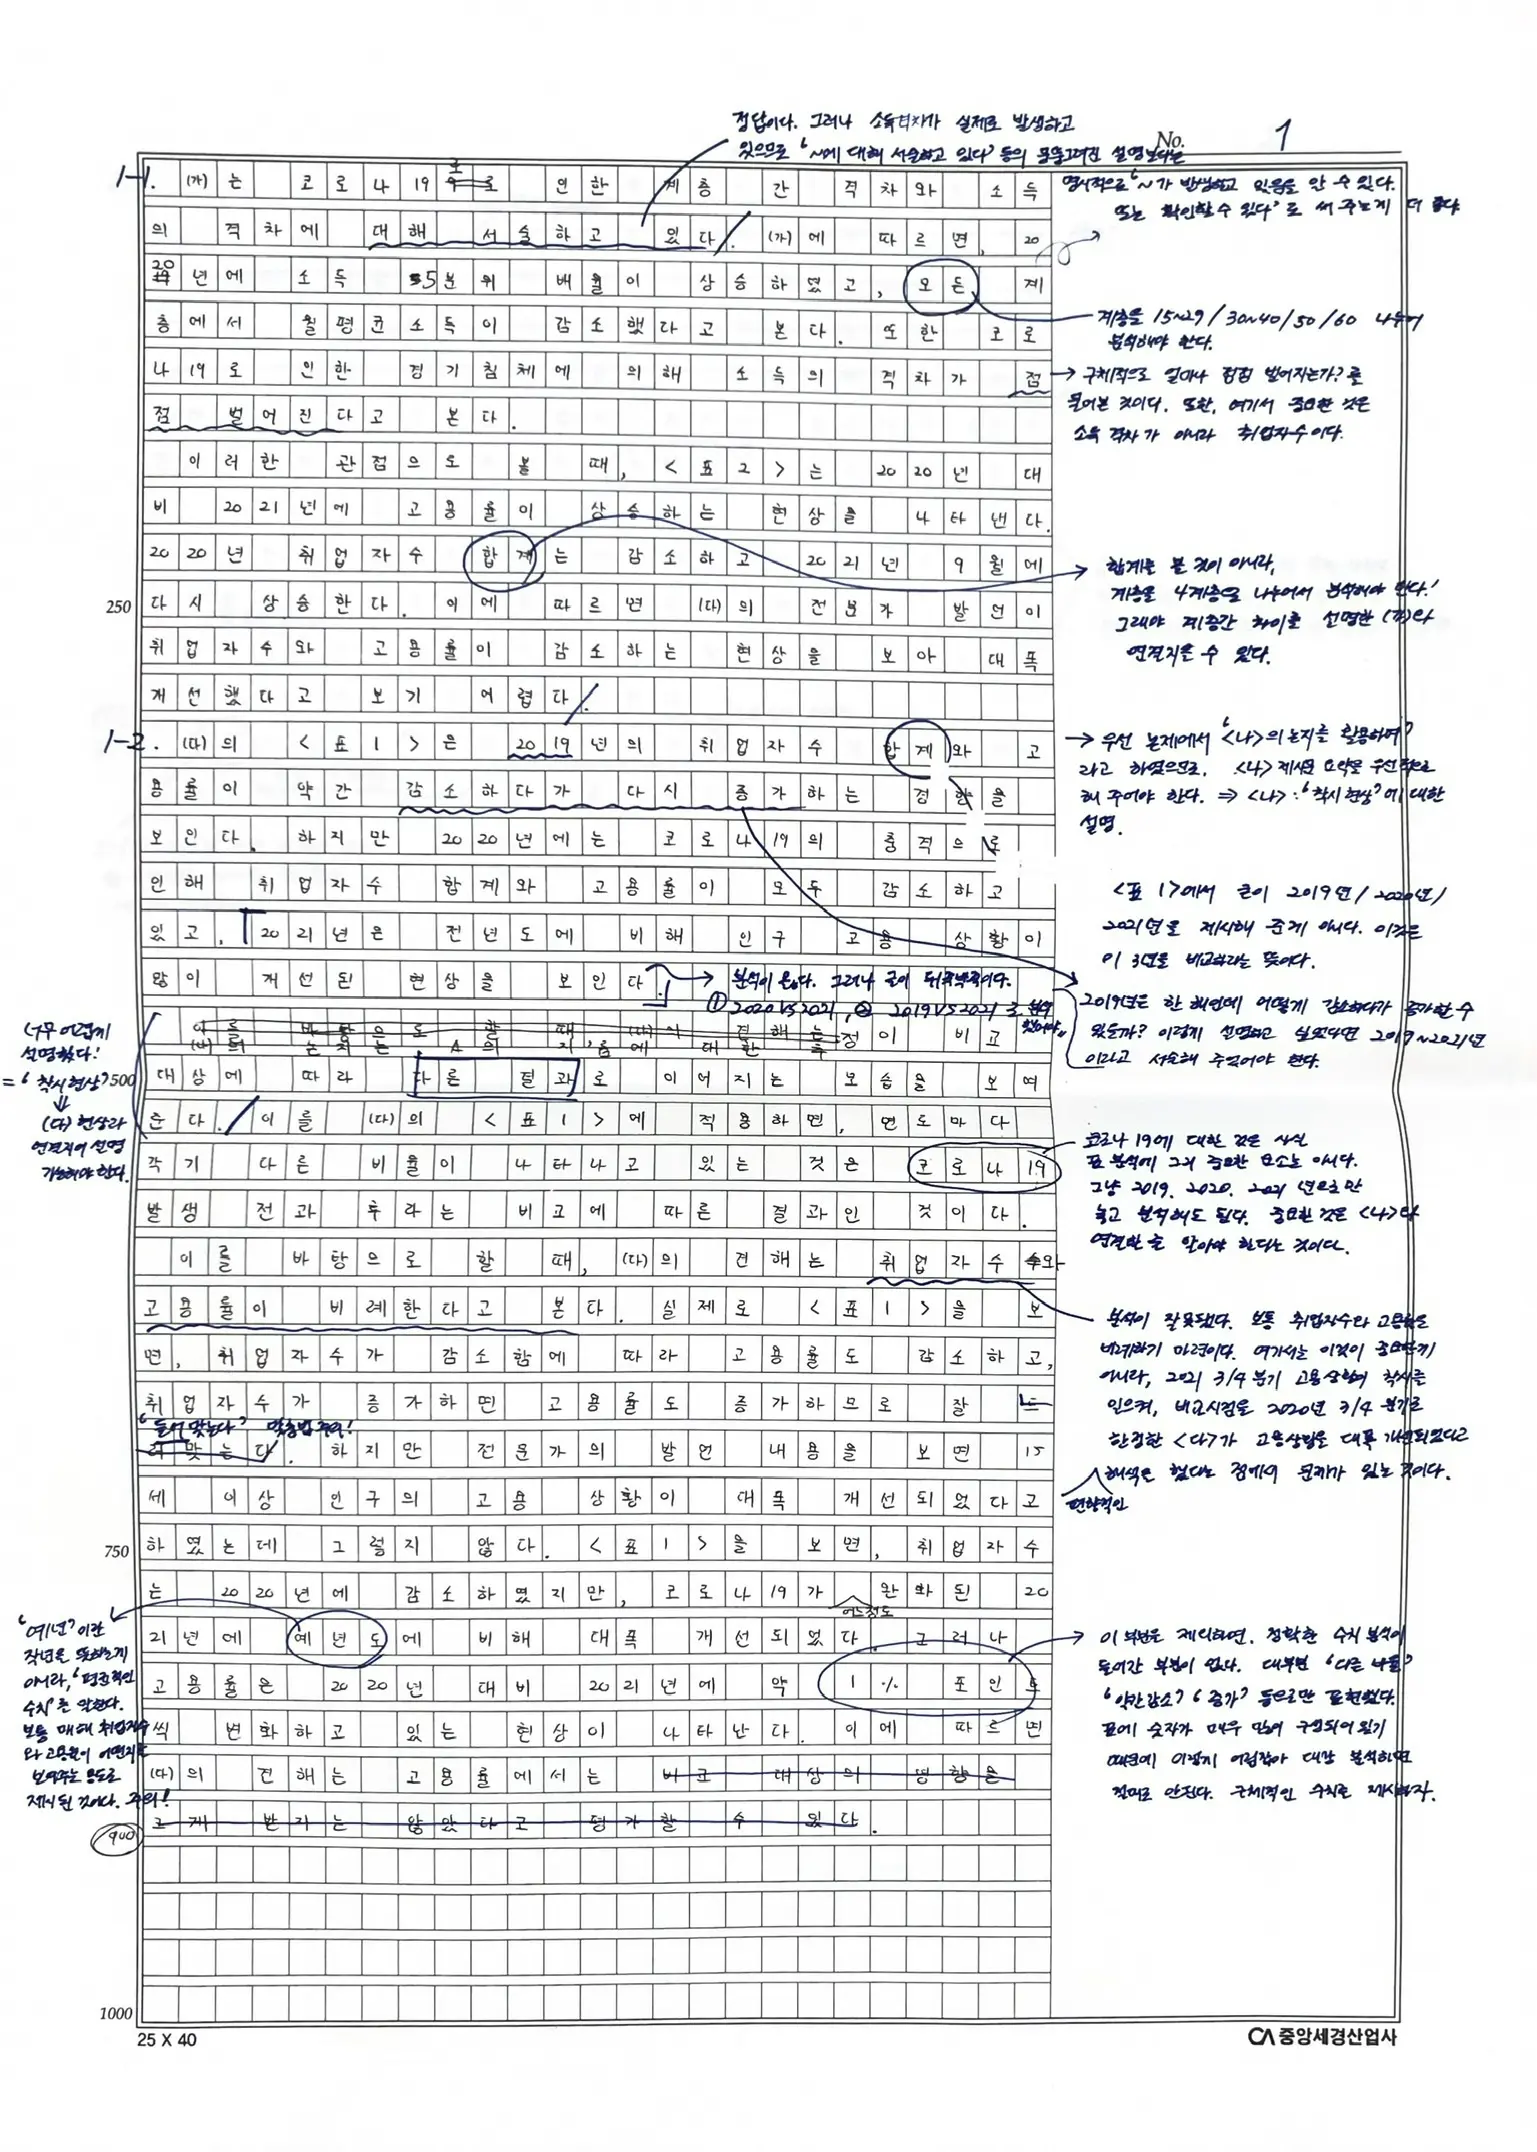 정답이다. 그러나 소득격차가 실제로 발생하고
있으므로 '~에 대해 서술하고 있다' 등의 설명보다는
명시적으로 '~가 발생하고 있음을 알 수 있다.
또는 확인할 수 있다'로 써 주는게 더 좋다
No. 1
1-1. (가)는 코로나19로 인한 계층 간 격차와 소득
의 격차에 대해 서술하고 있다. (가)에 따르면, 20
20년에 소득 5분위 배율이 상승하였고, 모든 계
층에서 월평균소득이 감소했다고 본다. 또한 코로
나19로 인한 경기침체에 의해 소득의 격차가 점
점 벌어진다고 본다.
계층을 15~29/30~40/50/60 나누어
분석해야 한다.
구체적으로 얼마나 점점 벌어지는가?를
물어본 것이다. 또한, 여기서 중요한 것은
소득 격차가 아니라 취업자수이다.
이러한 관점으로 볼 때, <표2>는 2020년 대
비 2021년에 고용률이 상승하는 현상을 나타낸다.
2020년 취업자수 합계는 감소하고 2021년 9월에
250
다시 상승한다. 이에 따르면 (다)의 전문가 발언이
취업자수와 고용률이 감소하는 현상을 보아 대폭
개선했다고 보기 어렵다.
합계를 볼 것이 아니라,
계층을 4계층으로 나누어서 분석해야 한다!
그래야 계층간 차이를 설명한 (가)와
연결지을 수 있다.
1-2. (다)의 <표1>은 2019년의 취업자수 합계와 고
용률이 약간 감소하다가 다시 증가하는 경향을
보인다. 하지만 2020년에는 코로나19의 충격으로
인해 취업자수 합계와 고용률이 모두 감소하고
있고, 2021년은 전년도에 비해 인구 고용 상황이
많이 개선된 현상을 보인다.
우선 논제에서 '<나>의 논지를 활용하여'
라고 하였으므로, <나> 제시문 요약을 우선적으로
해 주어야 한다. ⇒ <나>: '착시현상'에 대한
설명.
<표 1>에서 굳이 2019년/2020년/
2021년을 제시해 준게 아니다. 이것은
이 3년을 비교하라는 뜻이다.
분석이 옳다. 그러나 글이 뒤죽박죽이다.
① 2020 VS 2021, ② 2019 VS 2021로 분석
2019년은 한 해인데 어떻게 감소하다가 증가할 수
있을까? 이렇게 설명하고 싶었다면 2019~2021년
이라고 서술해 주었어야 한다.
이를 바탕으로 할 때, (다)의 견해는
(나)의 논지는 정이 비교
500
대상에 따라 다른 결과로 이어지는 모습을 보여
준다. 이를 (다)의 <표1>에 적용하면, 연도마다
각기 다른 비율이 나타나고 있는 것은 코로나19
발생 전과 후라는 비교에 따른 결과인 것이다.
너무 어렵게
설명했다!
= '착시현상'
⇓
(다) 현상과
연결지어 설명
가능해야 한다.
코로나19에 대한 것은 사실
표 분석에 그리 중요한 요소는 아니다.
그냥 2019, 2020, 2021 년으로만
놓고 분석해도 된다. 중요한 것은 <나>와
연결한 줄 알아야 한다는 것이다.
이를 바탕으로 할 때, (다)의 견해는 취업자수와
고용률이 비례한다고 본다. 실제로 <표1>을 보
면, 취업자수가 감소함에 따라 고용률도 감소하고,
취업자수가 증가하면 고용률도 증가하므로 잘 드
"들어맞는다" 맞춤법 주의!
러맞는다. 하지만 전문가의 발언 내용을 보면 15
세 이상 인구의 고용 상황이 대폭 개선되었다고
750
하였는데 그렇지 않다. <표1>을 보면, 취업자수
는 2020년에 감소하였지만, 코로나19가 어느정도 완화된 20
21년에 예년도에 비해 대폭 개선되었다. 그러나
고용률은 2020년 대비 2021년에 약 1% 포인트
씩 변화하고 있는 현상이 나타난다. 이에 따르면
(다)의 견해는 고용률에서는 비교 대상의 영향을
크게 받지는 않았다고 평가할 수 있다.
900
분석이 잘못됐다. 보통 취업자수와 고용률은
비례하기 마련이다. 여기서는 이것이 중요한게
아니라, 2021 3/4 분기 고용상황이 착시를
일으켜, 비교시점을 2020년 3/4 분기로
한정한 <다>가 고용상황을 대폭 개선되었다고
편향적인 해석을 했다는 점에서 문제가 있는 것이다.
'예년'이란
작년을 뜻하는게
아니라, '평균적인
수치'를 말한다.
보통 매해 취업자수
와 고용률이 어떤지를
보여주는 용도로
제시된 것이다. 주의!
이 부분을 제외하면, 정확한 수치 분석이
들어간 부분이 없다. 대부분 '다른 비율'
'약간 감소' '증가' 등으로만 표현했다.
표에 숫자가 매우 많이 구성되어 있기
때문에 이렇게 어림잡아 대강 분석하면
절대로 안된다. 구체적인 수치로 제시하자.
1000
25 X 40
CA 중앙세경산업사